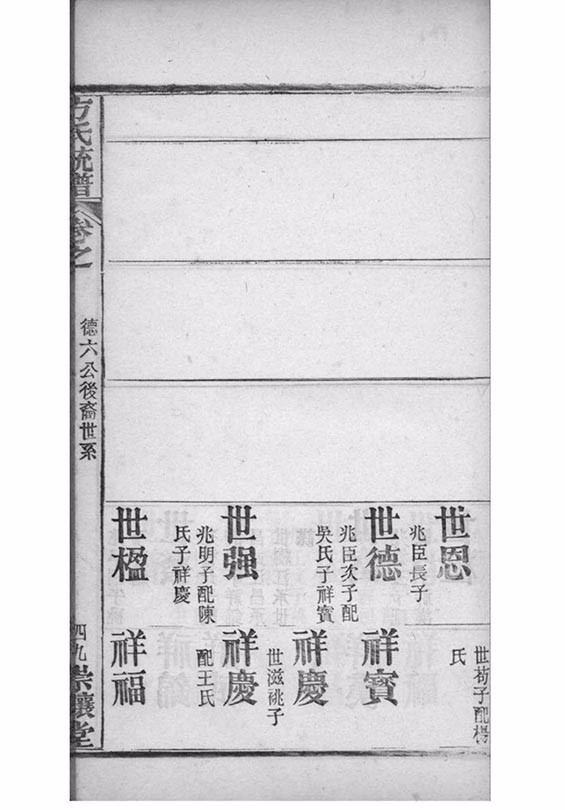 世恩
兆臣長子
世德
兆臣次子配
吳氏子祥實
世强
兆明子配陳
氏子祥慶
世楹
世荀子配楊
氏
祥實
祥慶
世滋祧子
祥慶
配王氏
祥福
方氏統譜
卷之
德六公後裔世系
四九
崇讓堂